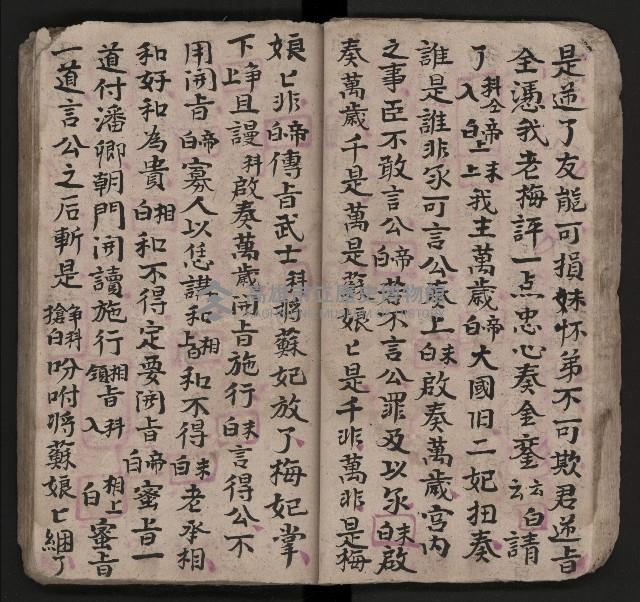 是逆了友能可損妹怀弟不可欺君逆旨
全憑我老梅評一点忠心奏金鑾 云云 白 請
了 科仝入 帝白 上上 末 我主萬歲 帝白 大國旧二妃扭奏
誰是誰非尔可言公 上 末白 啟奏萬歲宮內
之事臣不敢言公 帝白 不言公罪及以尔 末白 啟
奏萬歲千是萬是 娘匕是千非萬非是梅
娘匕非 帝白 傳旨武士 科 將蘇妃放了梅妃掌
下 净上 且謾 科 啟奏萬歲開旨施行 末白 言得公不
用開旨 帝白 寡人以恁講和 相白 和不得 末白 老丞相
和好和為貴 相白 和不得定要開旨 帝白 蜜旨一
道付潘卿朝門開讀施行 相領旨 科入 相上白 蜜旨
一道言公之后斬是 净科搶白 吩咐將蘇娘匕綑了
高雄市立歷史博物館
KAOHSIUNG MUSEUM OF HISTORY